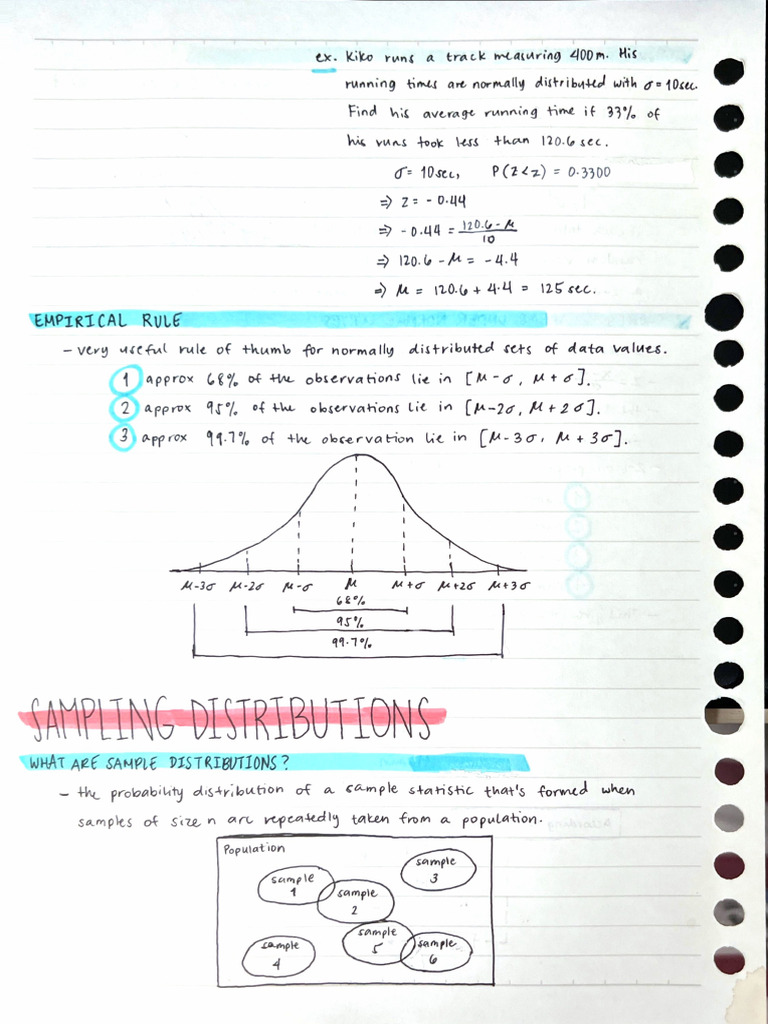 ex. Kiko runs a track measuring 400m. His
running times are normally distributed with σ = 10sec.
Find his average running time if 33% of
his runs took less than 120.6 sec.
σ = 10sec, P(Z<z) = 0.3300
⇒ z = - 0.44
⇒ - 0.44 = (120.6 - μ)/10
⇒ 120.6 - μ = - 4.4
⇒ μ = 120.6 + 4.4 = 125 sec.
EMPIRICAL RULE
- very useful rule of thumb for normally distributed sets of data values.
1 approx 68% of the observations lie in [μ-σ, μ+σ].
2 approx 95% of the observations lie in [μ-2σ, μ+2σ].
3 approx 99.7% of the observation lie in [μ-3σ, μ+3σ].
μ-3σ μ-2σ μ-σ μ μ+σ μ+2σ μ+3σ
68%
95%
99.7%
SAMPLING DISTRIBUTIONS
WHAT ARE SAMPLE DISTRIBUTIONS?
- the probability distribution of a sample statistic that's formed when
samples of size n are repeatedly taken from a population.
Population
sample
1
sample
2
sample
3
sample
4
sample
5
sample
6